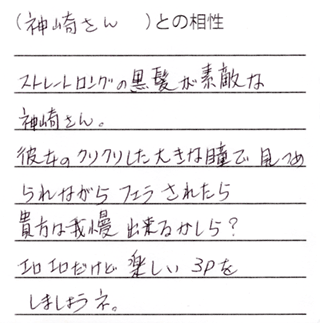 (神崎さん )との相性
ストレートロングの黒髪が素敵な
神崎さん。
彼女のクリクリした大きな瞳で見つめ
られながらフェラされたら
貴方は我慢出来るかしら?
エロエロだけど楽しい3Pを
しましょうネ。